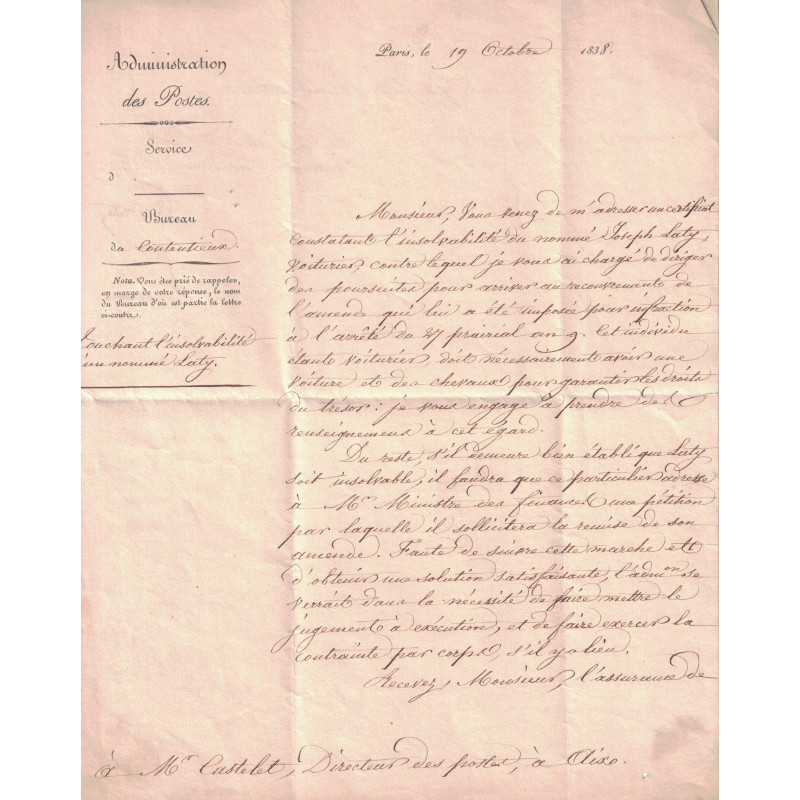 Administration
des Postes.
Service
d
Bureau
du Contentieux.
Nota. Vous êtes prié de rappeler,
en marge de votre réponse, le nom
du Bureau d'où est partie la lettre
ci-contre.
Touchant l'insolvabilité
d'un nommé Laty.
Paris, le 19 Octobre 1838.
Monsieur, Vous venez de m'adresser un certificat
constatant l'insolvabilité du nommé Joseph Laty,
voiturier, contre lequel je vous ai chargé de diriger
des poursuites pour arriver au recouvrement de
l'amende qui lui a été imposée pour infraction
à l'arrêté du 27 prairial an 9. Cet individu
étant voiturier, doit nécessairement avoir une
voiture et des chevaux pour garantir les droits
du trésor : je vous engage à prendre des
renseignemens à cet égard.
Du reste, s'il demeure bien établi que Laty
soit insolvable, il faudra que ce particulier adresse
à Mr. Ministre des finances une pétition
par laquelle il sollicitera la remise de son
amende. Faute de suivre cette marche et
d'obtenir une solution satisfaisante, l'admon se
verrait dans la nécessité de faire mettre le
jugement à exécution, et de faire exercer la
contrainte par corps, s'il y a lieu.
Recevez, Monsieur, l'assurance de
à Mr Castelet, Directeur des postes, à Aix.